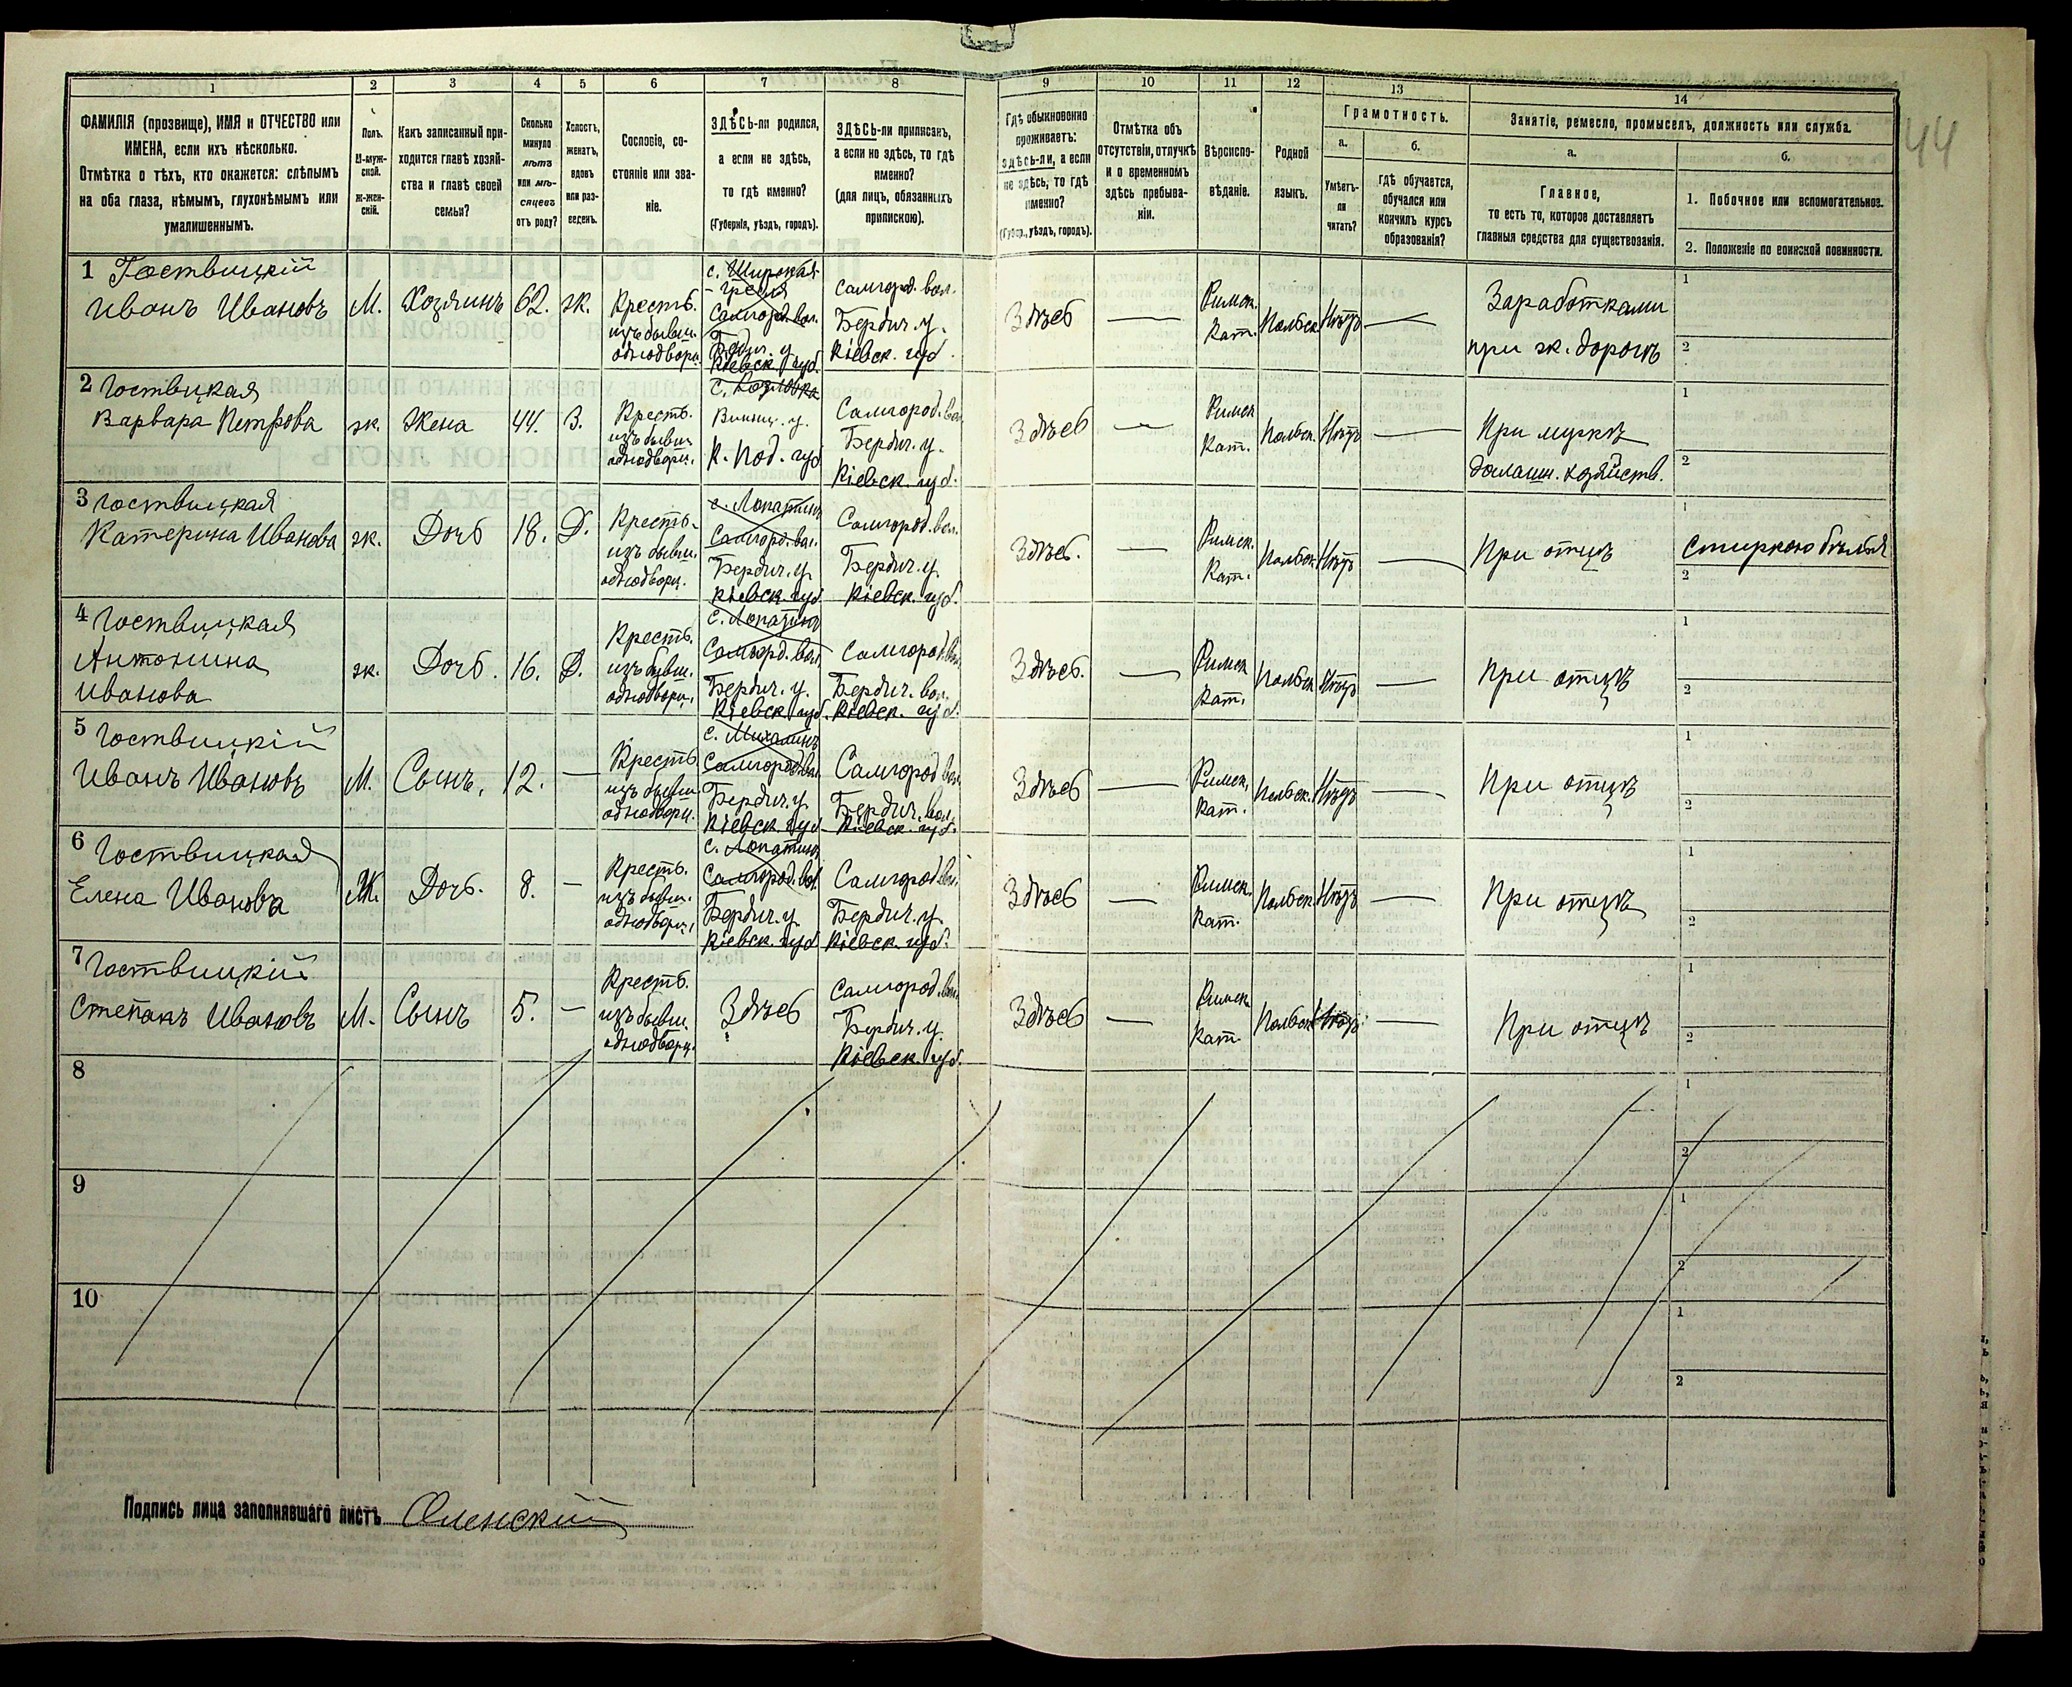 44
1 2 3 4 5 6 7 8 9 10 11 12 13 14
ФАМИЛІЯ (прозвище), ИМЯ и ОТЧЕСТВО или
ИМЕНА, если ихъ нѣсколько.
Отмѣтка о тѣхъ, кто окажется: слѣпымъ
на оба глаза, нѣмымъ, глухонѣмымъ или
умалишеннымъ.
Полъ.
М-муж-
ской.
Ж-жен-
скій.
Какъ записанный при-
ходится главѣ хозяй-
ства и главѣ своей
семьи?
Сколько
минуло
лѣтъ
или мѣ-
сяцевъ
отъ роду?
Холостъ,
женатъ,
вдовъ
или раз-
веденъ.
Сословіе, со-
стояніе или зва-
ніе.
ЗДѢСЬ-ли родился,
а если не здѣсь,
то гдѣ именно?
(Губернія, уѣздъ, городъ).
ЗДѢСЬ-ли приписанъ,
а если не здѣсь, то гдѣ
именно?
(для лицъ, обязанныхъ
припискою).
Гдѣ обыкновенно
проживаетъ:
здѣсь-ли, а если
не здѣсь, то гдѣ
именно?
(Губер., уѣздъ, городъ).
Отмѣтка объ
отсутствіи, отлучкѣ
и о временномъ
здѣсь пребыва-
ніи.
Вѣроиспо-
вѣданіе.
Родной
языкъ.
Грамотность.
а.
Умѣетъ-
ли
читать?
б.
гдѣ обучается,
обучался или
кончилъ курсъ
образованія?
Занятіе, ремесло, промыселъ, должность или служба.
а.
Главное,
то есть то, которое доставляетъ
главныя средства для существованія.
б.
1. Побочное или вспомогательное.
2. Положеніе по воинской повинности.
1 Гоствицкій
Иванъ Ивановъ
М.
Хозяинъ
62.
ж.
Крестъ.
изъ бывш.
однодворц.
с. Широкая
гребля
Самгород. вол.
Бердич. у.
Кіевск. губ.
Самгород. вол.
Бердич. у.
Кіевск. губ.
Здѣсь
—
Римск.
Кат.
Польск.
Нѣтъ
—
Заработками
при ж. дорогѣ
1
2
2 Гоствицкая
Варвара Петрова
ж.
Жена
44.
З.
Крестъ.
изъ бывш.
однодворц.
Винниц. у.
К. Под. губ
Самгород. вол.
Бердич. у.
Кіевск. губ.
Здѣсь
—
Римск
Кат.
Польск.
Нѣтъ
—
При мужѣ
домашн. хозяйств.
1
2
3 Гоствицкая
Катерина Иванова
ж.
Дочь
18.
Д.
Крестъ.
изъ бывш.
однодворц.
с. Лопатинъ
Самгород. вол.
Бердич. у.
Кіевск. губ
Самгород. вол.
Бердич. у.
Кіевск. губ.
Здѣсь.
—
Римск.
Кат.
Польск.
Нѣтъ
—
При отцѣ
1
Стиркою бѣлья
2
4 Гоствицкая
Антонина
Иванова
ж.
Дочь.
16.
Д.
Крестъ.
изъ бывш.
однодворц.
с. Лопатинъ
Самгород. вол.
Бердич. у.
Кіевск. губ.
Самгород. вол.
Бердич. вол.
Кіевск. губ.
Здѣсь.
—
Римск
Кат.
Польск
Нѣтъ
—
При отцѣ
1
2
5 Гоствицкій
Иванъ Ивановъ
М.
Сынъ.
12.
—
Крестъ
изъ бывш
однодворц.
с. Михалинъ
Самгород. вол.
Бердич. у.
Кіевск. губ
Самгород. вол.
Бердич. вол.
Кіевск. губ.
Здѣсь
—
Римск.
Кат.
Польск.
Нѣтъ
—
При отцѣ
1
2
6 Гоствицкая
Елена Иванова
Ж.
Дочь.
8.
—
Крестъ.
изъ бывш.
однодворц.
с. Лопатинъ
Самгород. вол.
Бердич. у
Кіевск. губ
Самгород. вол.
Бердич. у.
Кіевск. губ.
Здѣсь
—
Римск.
Кат.
Польск.
Нѣтъ
—
При отцѣ
1
2
7 Гоствицкій
Степанъ Ивановъ
М.
Сынъ
5.
—
Крестъ.
изъ бывш.
однодворц.
Здѣсь
Самгород. вол.
Бердич. у.
Кіевск. губ.
Здѣсь
—
Римск.
Кат.
Польск
Нѣтъ
—
При отцѣ
1
2
8
1
2
9
1
2
10
1
2
Подпись лица заполнявшаго листъ Оленскій